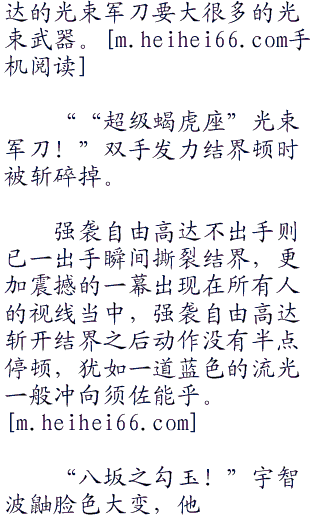 达的光束军刀要大很多的光
束武器。[m.heihei66.com手
机阅读]
““超级蝎虎座”光束
军刀！”双手发力结界顿时
被斩碎掉。
强袭自由高达不出手则
已一出手瞬间撕裂结界，更
加震撼的一幕出现在所有人
的视线当中，强袭自由高达
斩开结界之后动作没有半点
停顿，犹如一道蓝色的流光
一般冲向须佐能乎。
[m.heihei66.com]
“八坂之勾玉！”宇智
波鼬脸色大变，他